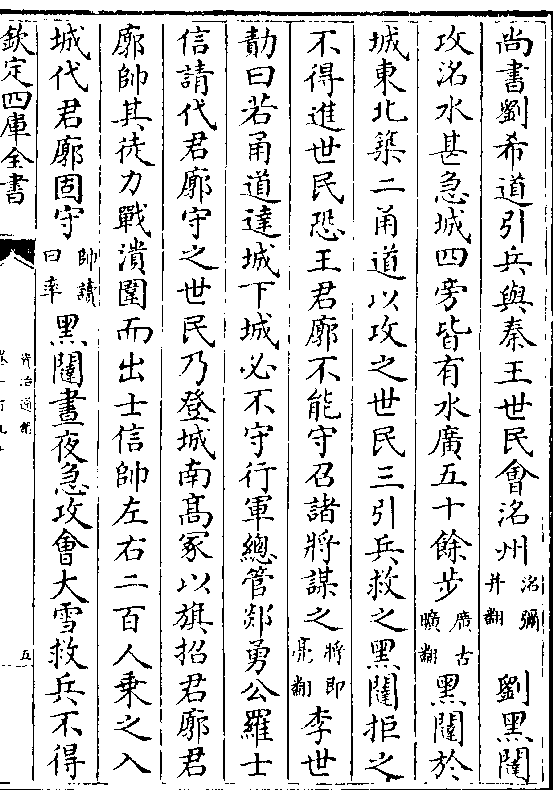 尚書劉希道引兵與秦王世民會洺州洺彌并翻劉黑闥
攻洺水甚急城四旁皆有水廣五十餘步廣古曠翻黑闥於
城東北築二甬道以攻之世民三引兵救之黑闥拒之
不得進世民恐王君廓不能守召諸將謀之將即亮翻李世
勣曰若甬道達城下城必不守行軍總管郯勇公羅士
信請代君廓守之世民乃登城南髙冢以旗招君廓君
廓帥其徒力戰潰圍而出士信帥左右二百人乗之入
城代君廓固守帥讀曰率黑闥晝夜急攻會大雪救兵不得
欽定四庫全書
資治通鑑
五